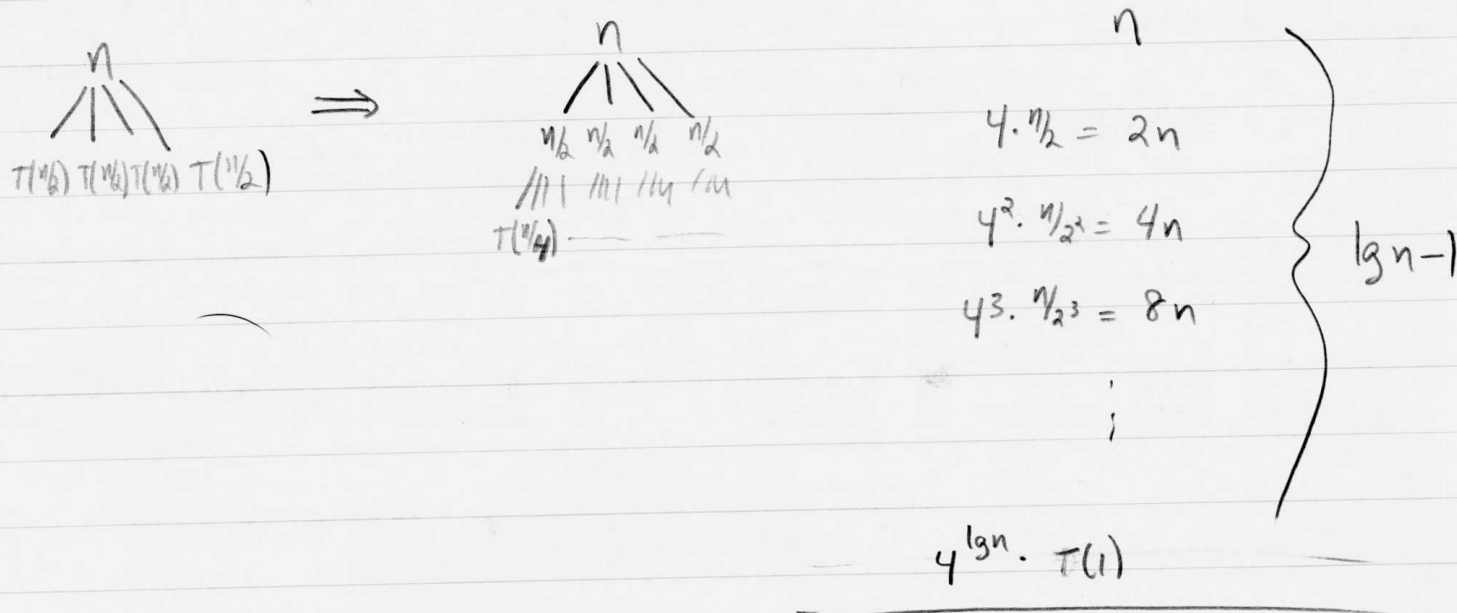 n
T(n/2) T(n/2) T(n/2) T(n/2)
⇒
n
n/2 n/2 n/2 n/2
T(n/4)
n
4 · n/2 = 2n
4² · n/2² = 4n
4³ · n/2³ = 8n
⋮
lg n - 1
4^{lg n} · T(1)